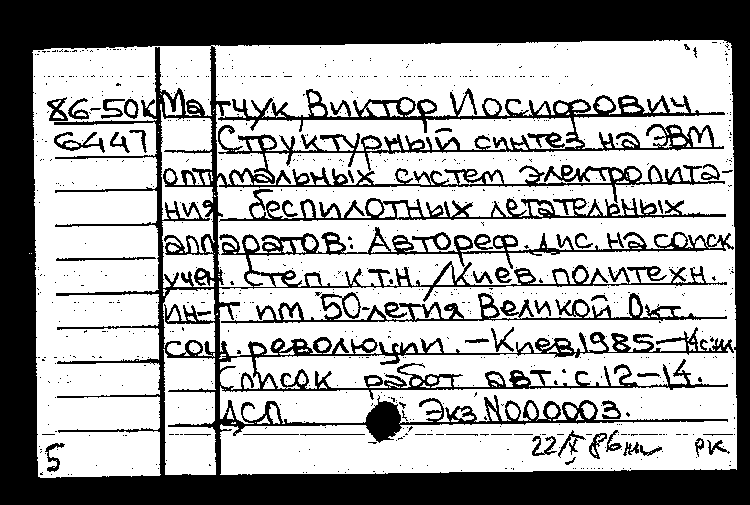 86-50К Матчук, Виктор Иосифович.
6447 Структурный синтез на ЭВМ
оптимальных систем электропита-
ния беспилотных летательных
аппаратов: Автореф. дис. на соиск
учен. степ. к.т.н. /Киев. политехн.
ин-т им. 50-летия Великой Окт.
соц. революции. – Киев, 1985. –
Список работ авт.: с. 12–14.
ДСП. Экз. N000003.
5 22/V 86 РК